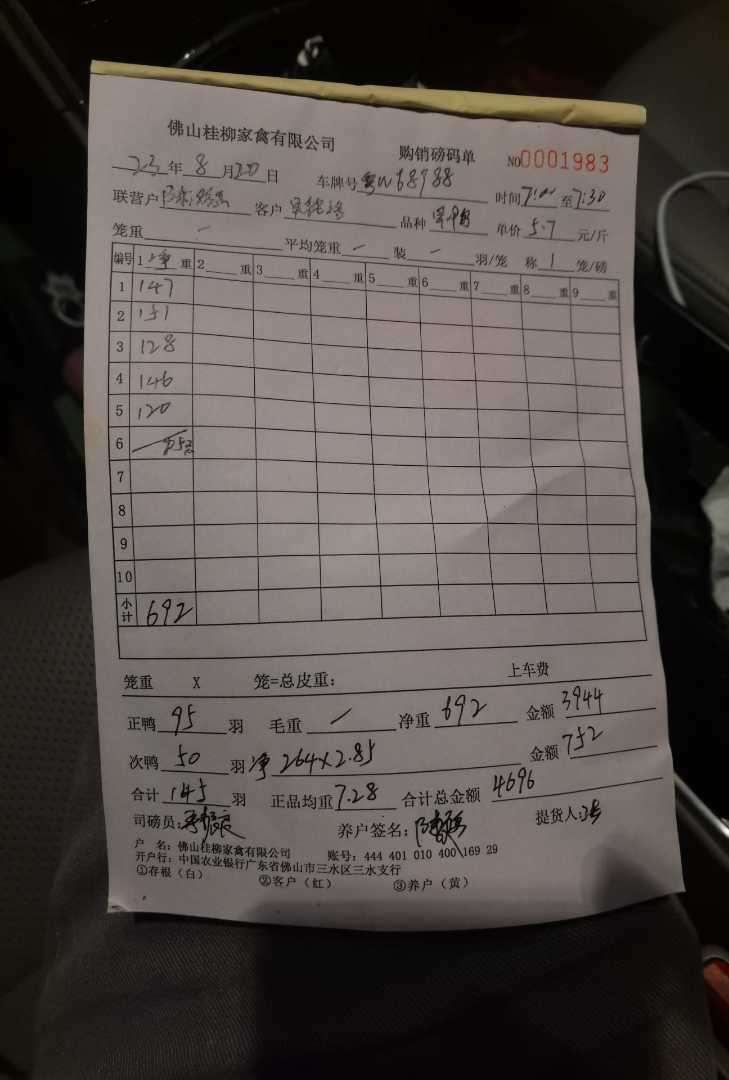 佛山桂柳家禽有限公司 购销磅码单 NO0001983
23年8月20日 车牌号 粤W68988 时间7:00至7:30
联营户 客户 品种 单价5.7元/斤
笼重 — 平均笼重 — 装 — 羽/笼 称 1 笼/磅
编号 1 净 重 2 重 3 重 4 重 5 重 6 重 7 重 8 重 9 重
1 147
2 151
3 128
4 146
5 120
6
7
8
9
10
小计 692
笼重 X 笼=总皮重: 上车费
正鸭 95 羽 毛重 / 净重 692 金额 3944
次鸭 50 羽 净 264×2.85 金额 752
合计 145 羽 正品均重 7.28 合计总金额 4696
司磅员: 养户签名: 提货人:
户 名: 佛山桂柳家禽有限公司 账号: 444 401 010 400 169 29
开户行: 中国农业银行广东省佛山市三水区三水支行
①存根（白） ②客户（红） ③养户（黄）